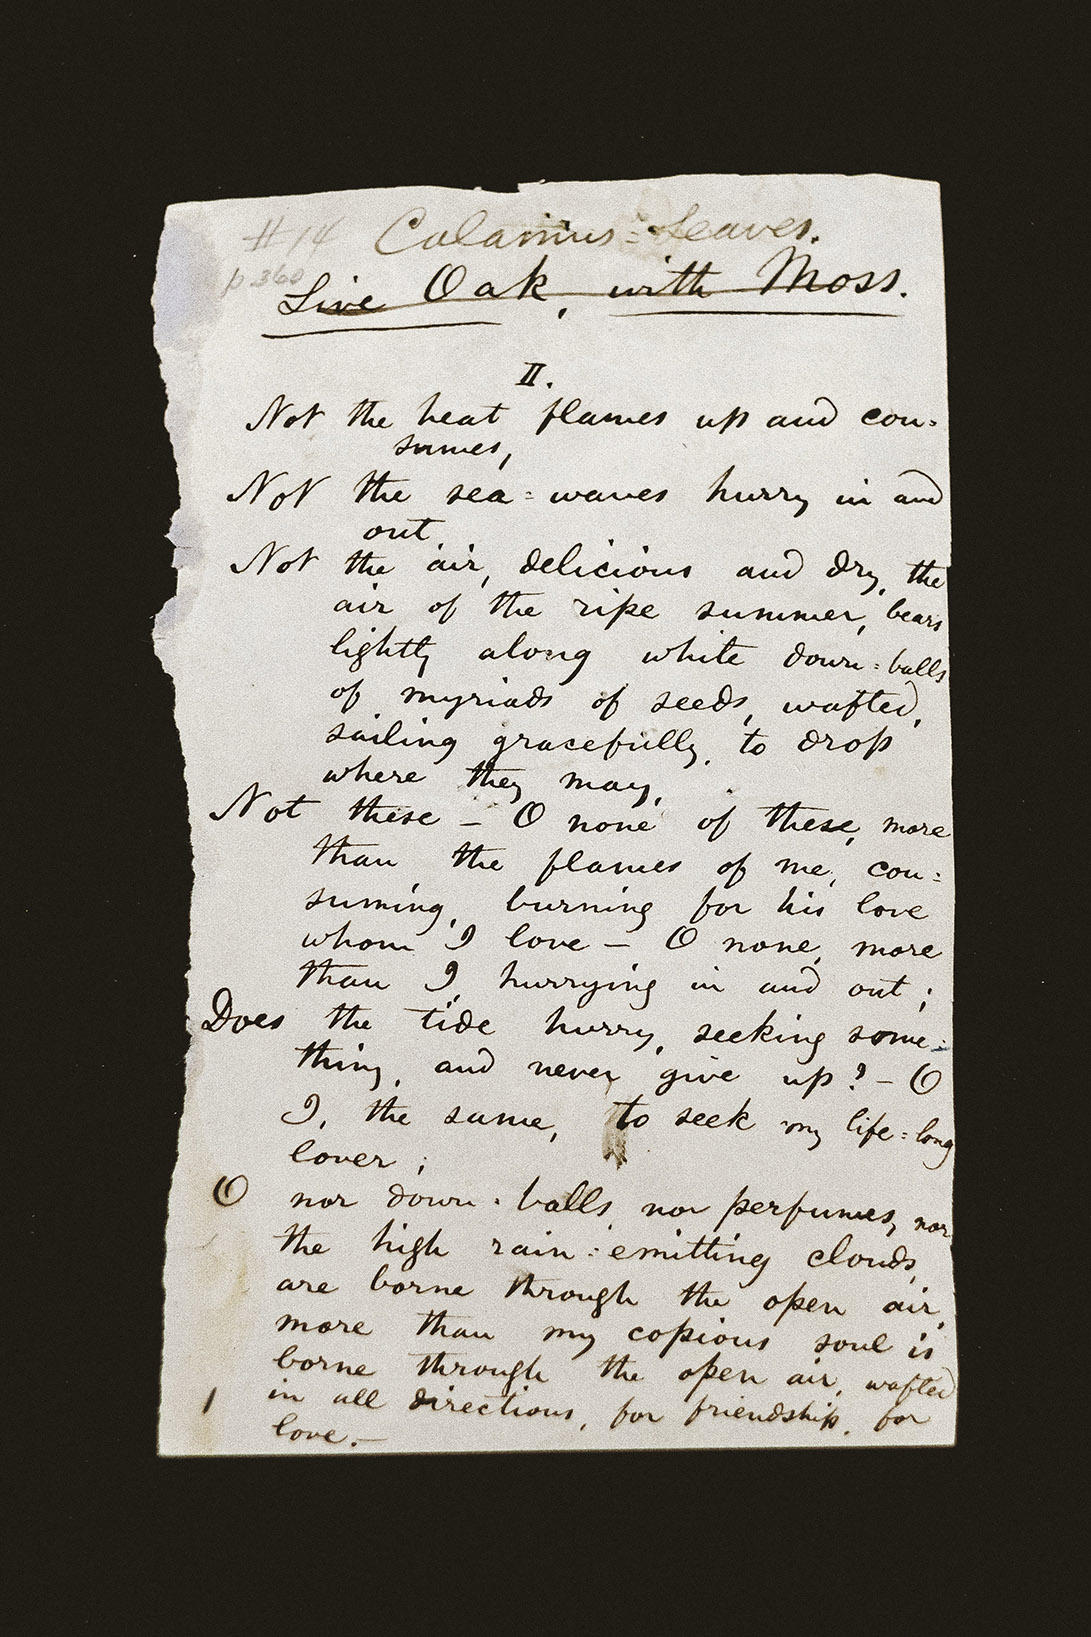 # 14 Calamus-Leaves.
p 360
Live Oak, with Moss.
II.
Not the heat flames up and con-
sumes,
Not the sea-waves hurry in and
out,
Not the air, delicious and dry, the
air of the ripe summer, bears
lightly along white down-balls
of myriads of seeds, wafted,
sailing gracefully, to drop
where they may,
Not these — O none of these, more
than the flames of me, con-
suming, burning for his love
whom I love — O none, more
than I, hurrying in and out;
Does the tide hurry, seeking some-
thing, and never give up? — O
I, the same, to seek my life-long
lover;
O nor down-balls, nor perfumes, nor
the high rain-emitting clouds,
are borne through the open air,
more than my copious soul is
borne through the open air, wafted
in all directions, for friendship, for
love. —